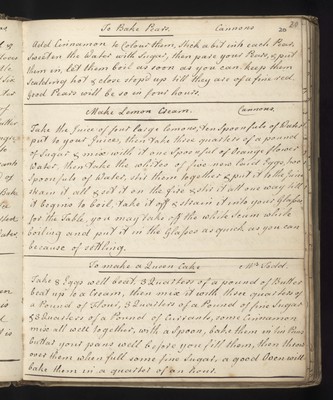 To Bake Pears Cannons 20
add Cinnamon to Colour them, Stick a bit into each Pear,
Sweeten the Water with Sugar, then pare your Pears, & put
them in, let them boil as soon as you can, keep them
scalding hot & close stop'd up till they are of a fine red.
good Pears will be so in four hours.
Make Lemon Cream. Cannons.
Take the Juice of four large lemons, ten Spoonfuls of Water
put to your Juice, then take three quarters of a pound
of Sugar & mix with it one Spoonful of Orange flower
Water, then take the whites of five new laid Eggs, two
Spoonfuls of Water, stir them together & put it to the Juice
strain it all & set it on the fire & stir it all one way till
it begins to boil, take it off & strain it into your Glasses
for the Table, you may take off the white Scum while
boiling and put it in the Glasses as quick as you can
because of settling.
To make a Queen Cake Mrs
Take 8 Eggs well beat, 3 Quarters of a pound of Butter
beat up to a Cream, then mix it with three quarters of
a Pound of Flour, 3 Quarters of a Pound of fine Sugar,
& 3 Quarters of a Pound of Currants, some Cinnamon
mix all well together, with a Spoon, bake them in tin Pans
butter your pans well before you fill them, then throw
over them when full some fine Sugar, a good Oven will
bake them in a quarter of an hour.